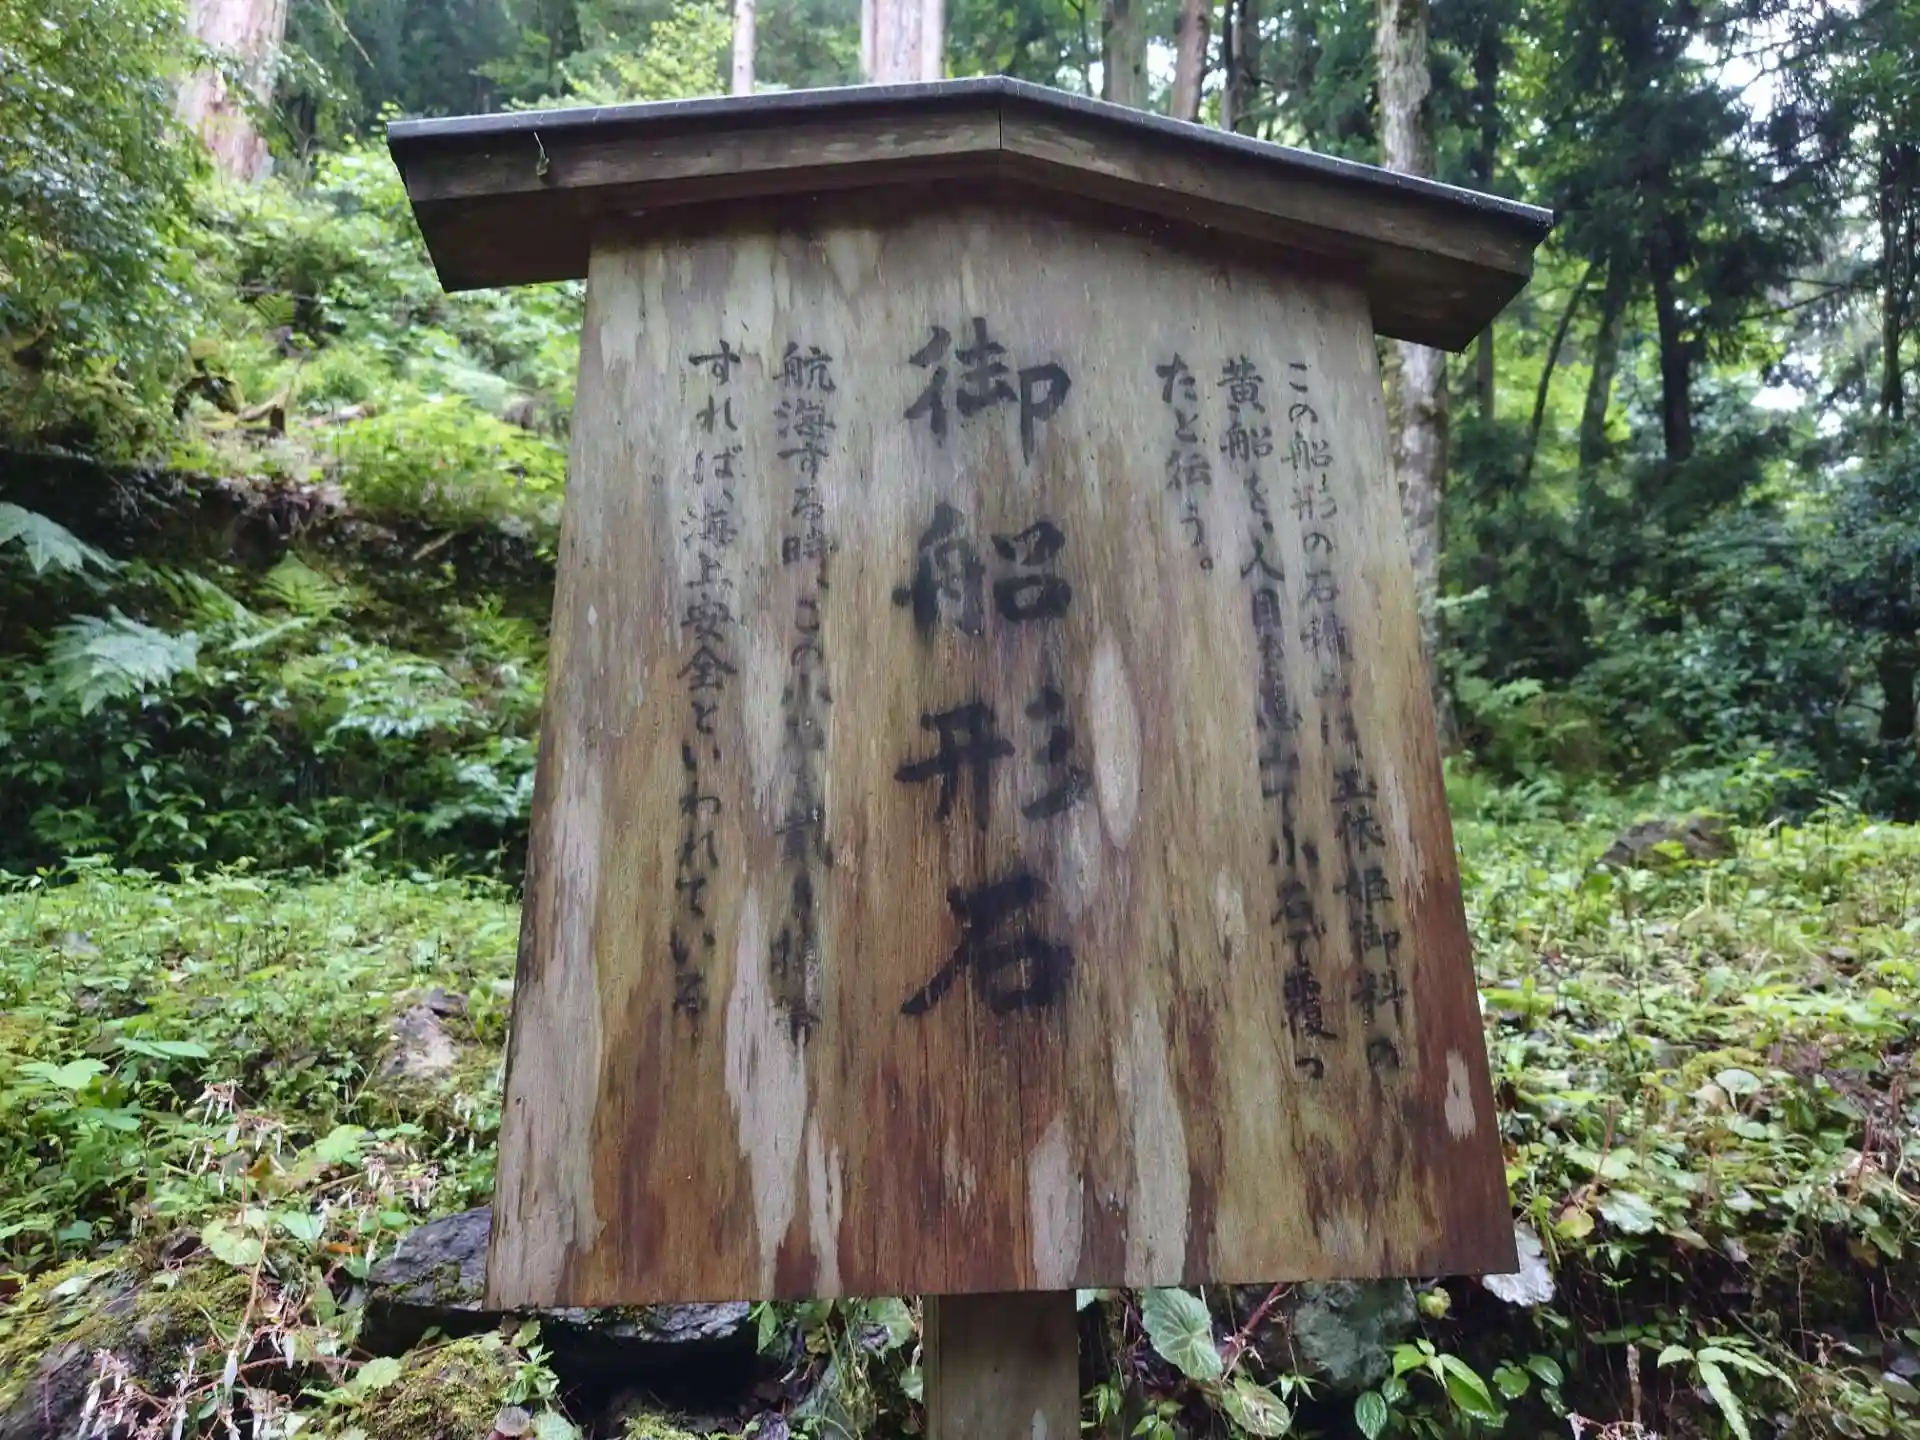 この船形の石積には玉依姫御料の
黄船を、人目を忌みて小石で覆っ
たと伝う。
御船形石
航海する時、この小石を携帯
すれば、海上安全といわれている